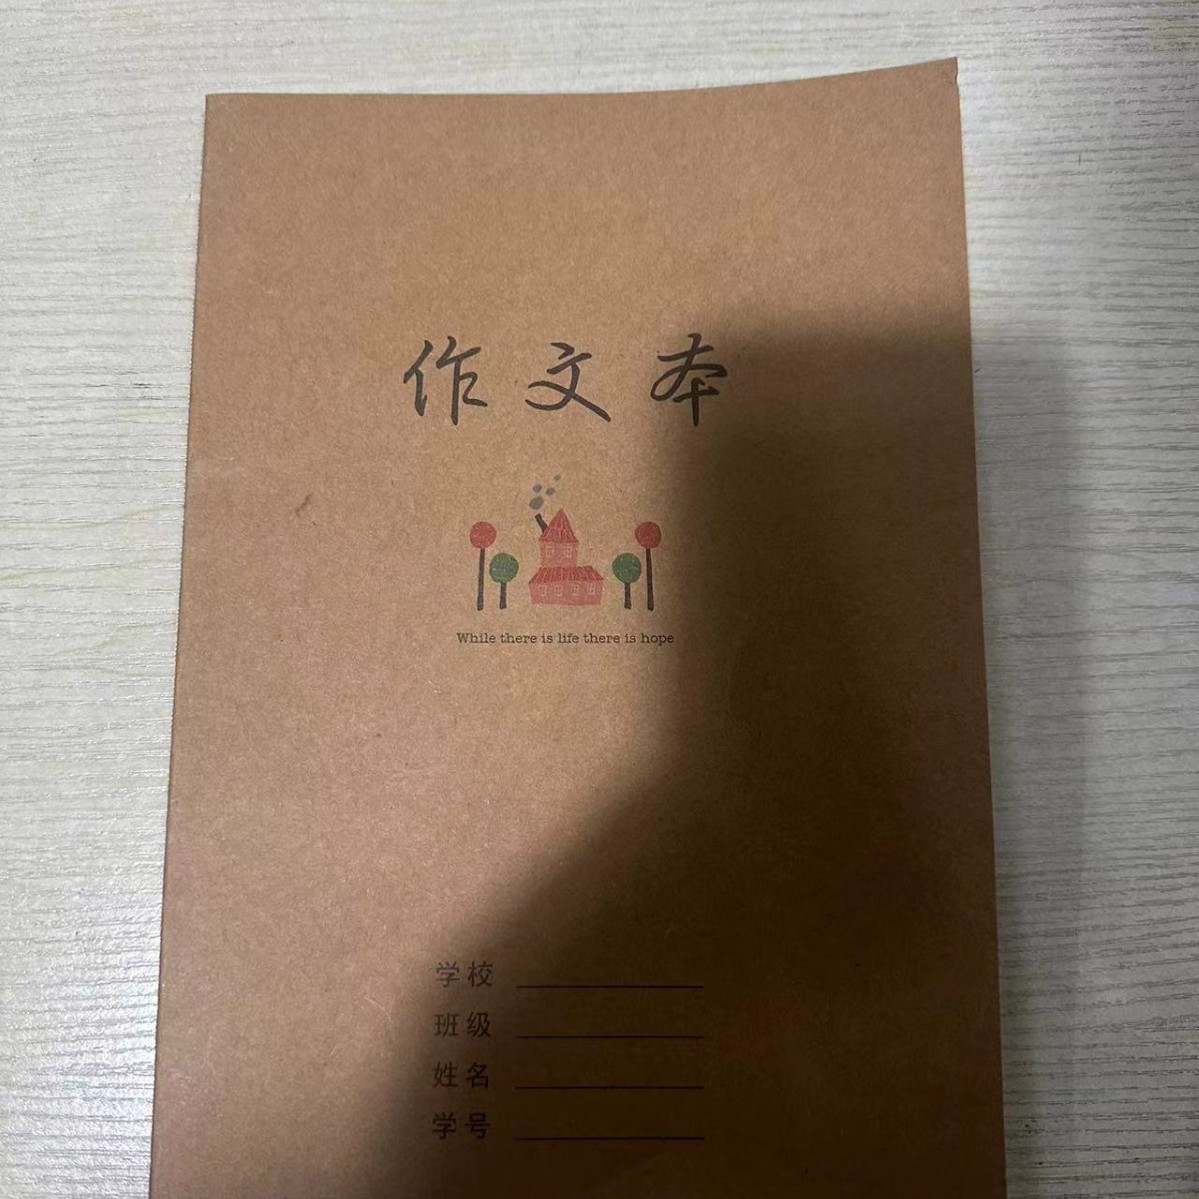 作文本
While there is life there is hope
学校
班级
姓名
学号